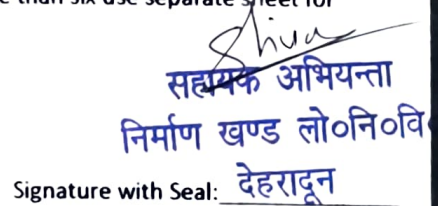 than six use separate sheet for
Shiva
सहायक अभियन्ता
निर्माण खण्ड लो०नि०वि
Signature with Seal: देहरादून